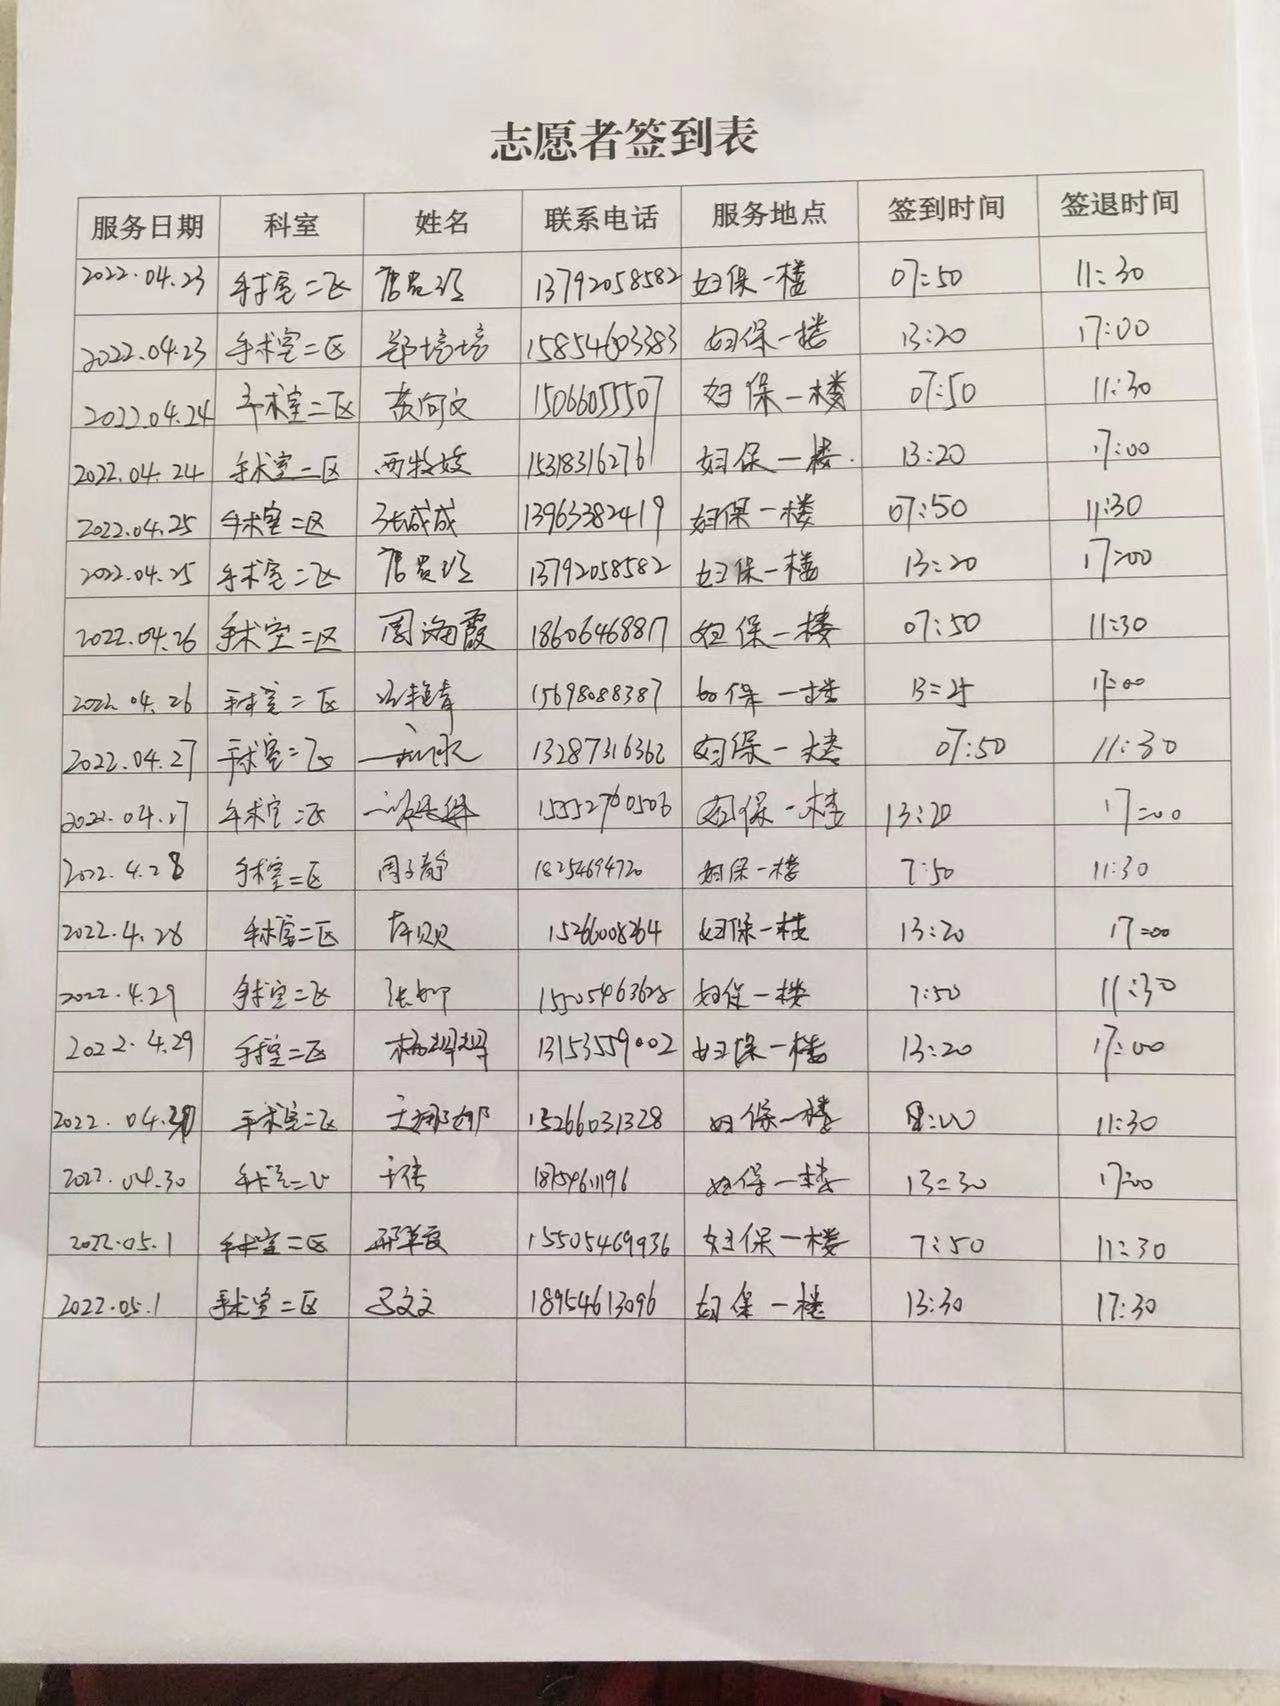 志愿者签到表
服务日期 科室 姓名 联系电话 服务地点 签到时间 签退时间
2022.04.23 手术室二区 13792058582 妇保一楼 07:50 11:30
2022.04.23 手术室二区 郑培培 15854603383 妇保一楼 13:20 17:00
2022.04.24 手术室二区 15066055507 妇保一楼 07:50 11:30
2022.04.24 手术室二区 15318316276 妇保一楼. 13:20 17:00
2022.04.25 手术室二区 张成成 13963382419 妇保一楼 07:50 11:30
2022.04.25 手术室二区 13792058582 妇保一楼 13:20 17:00
2022.04.26 手术室二区 周海霞 18606468817 妇保一楼 07:50 11:30
2022.04.26 手术室二区 15698088387 妇保一楼 17:00
2022.04.27 手术室二区 13287316362 妇保一楼 07:50 11:30
2022.04.27 手术室二区 15552760506 妇保一楼 13:20 17:00
2022.4.28 手术室二区 周子静 18254694720 妇保一楼 7:50 11:30
2022.4.28 手术室二区 15266008264 妇保一楼 13:20 17:00
2022.4.29 手术室二区 15505463628 妇保一楼 7:50 11:30
2022.4.29 手术室二区 13153559002 妇保一楼 13:20 17:00
手术室二区 王娜娜 15266031328 妇保一楼 11:30
2022.04.30 手术室二区 妇保一楼 13:30 17:00
2022.05.1 手术室二区 15505469936 妇保一楼 7:50 11:30
2022.05.1 手术室二区 18954613096 妇保一楼 13:30 17:30